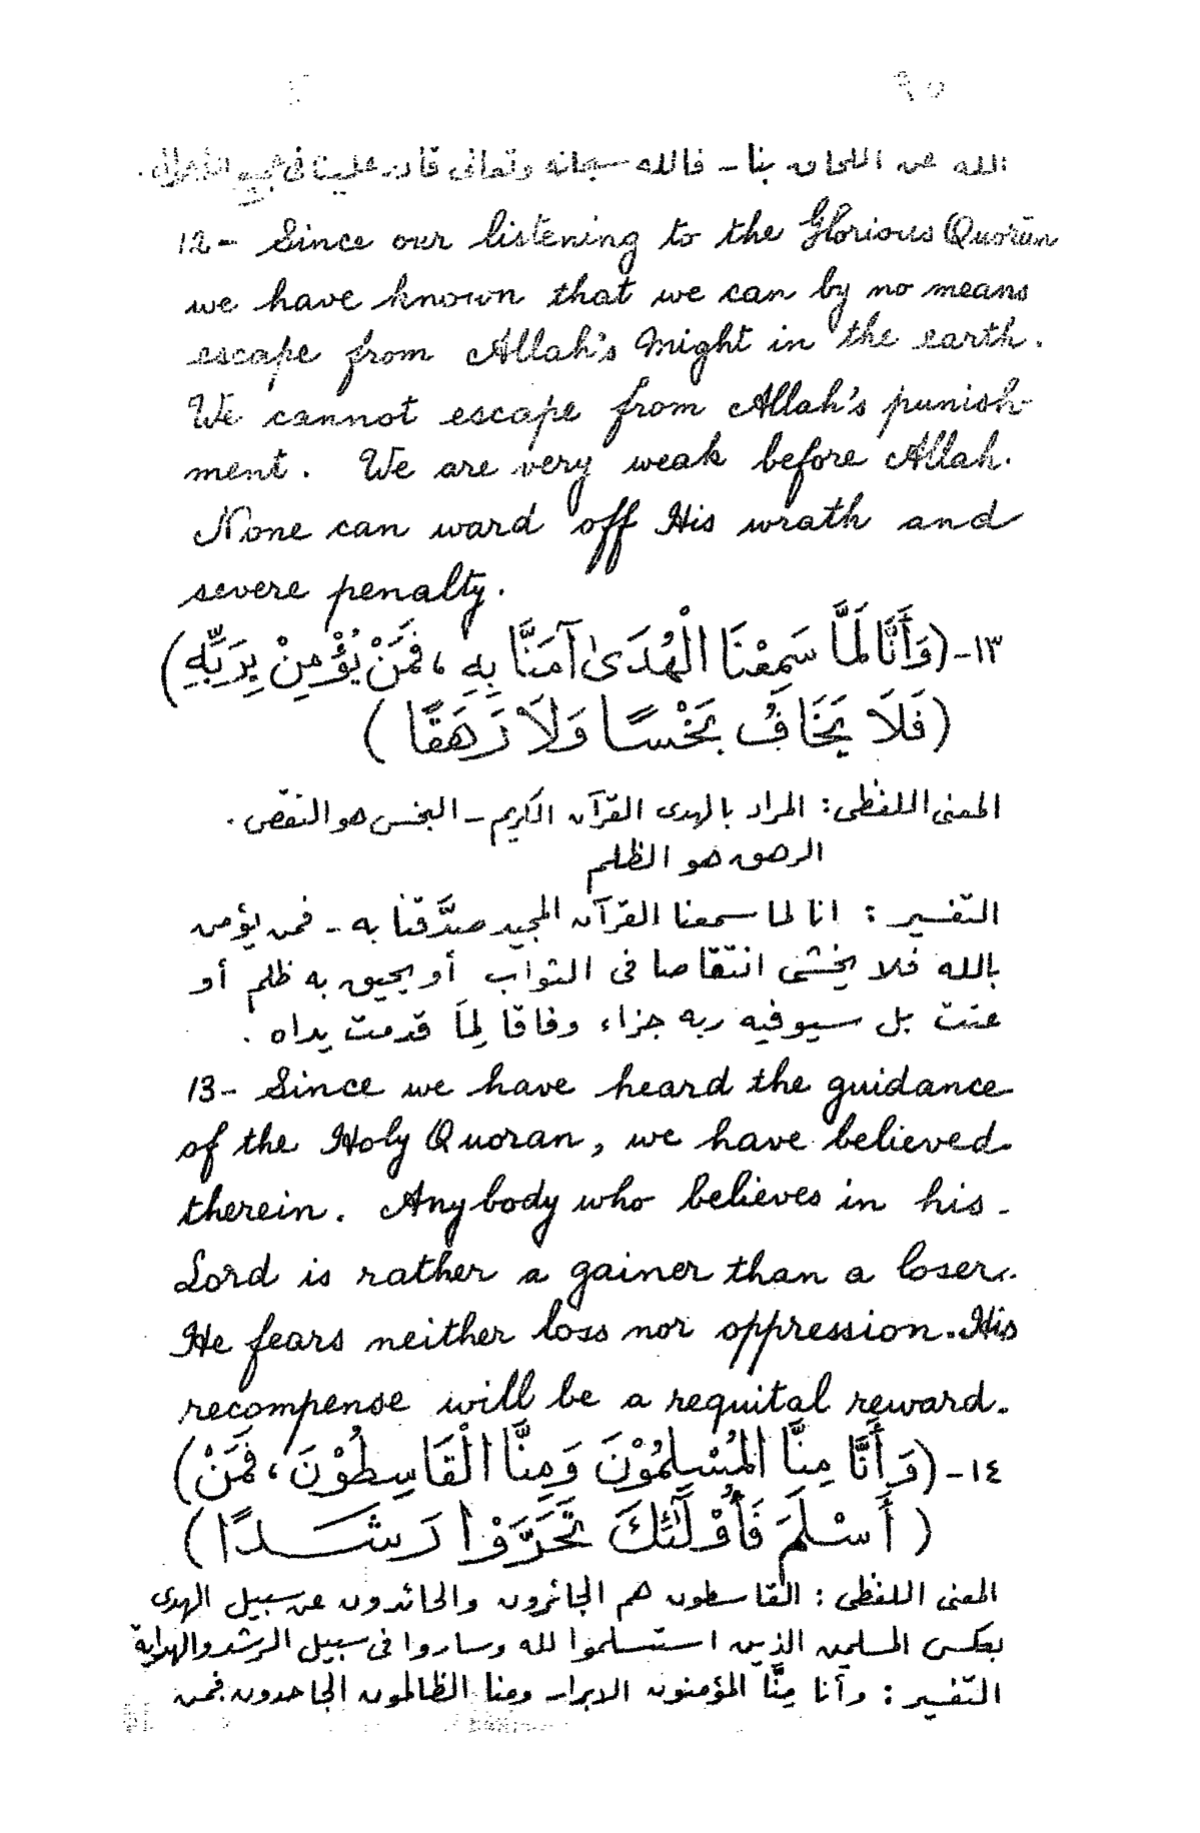 ٩٥
الله عن اللحاق بنا - فالله سبحانه وتعالى قادر علينا فى جميع الأحوال .
12 - Since our listening to the Glorious Quorān
we have known that we can by no means
escape from Allah's Might in the earth.
We cannot escape from Allah's punish-
ment. We are very weak before Allah.
None can ward off His wrath and
severe penalty.
١٣- (وَأَنَّا لَمَّا سَمِعْنَا الْهُدَىٰ آمَنَّا بِهِ ، فَمَنْ يُؤْمِنْ بِرَبِّهِ)
(فَلَا يَخَافُ بَخْسًا وَلَا رَهَقًا)
المعنى اللفظى : المراد بالهدى القرآن الكريم - البخس هو النقص .
الرهق هو الظلم
التفسير : انا لما سمعنا القرآن المجيد صدَّقنا به - فمن يؤمن
بالله فلا يخشى انتقاصا فى الثواب أو يحيق به ظلم أو
عنت بل سيوفيه ربه جزاء وفاقا لِمَا قدمت يداه .
13- Since we have heard the guidance
of the Holy Quoran, we have believed
therein. Anybody who believes in his
Lord is rather a gainer than a loser.
He fears neither loss nor oppression. His
recompense will be a requital reward.
١٤- (وَأَنَّا مِنَّا الْمُسْلِمُوْنَ وَمِنَّا الْقَاسِطُوْنَ ، فَمَنْ)
(أَسْلَمَ فَأُوْلَٰٓئِكَ تَحَرَّوْا رَشَدًا)
المعنى اللفظى : القاسطون هم الجائرون والحائدون عن سبيل الهدى
بعكس المسلمين الذين استسلموا لله وساروا فى سبيل الرشد والهداية
التفسير : وأنا مِنَّا المؤمنون الابرار ومنا الظالمون الجاحدون فمن